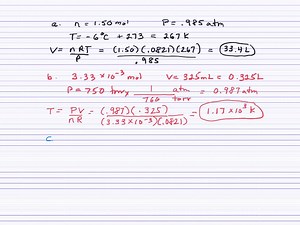 a. n = 1.50 mol P = .985 atm
T = -6°C + 273 = 267 K
V = nRT/P = (1.50)(.0821)(267)/.985 = 33.4 L
b. 3.33 × 10⁻³ mol V = 325 mL = 0.325 L
P = 750 torr × 1 atm/760 torr = 0.987 atm
T = PV/nR = (.987)(.325)/(3.33 × 10⁻³)(.0821) = 1.17 × 10³ K
c